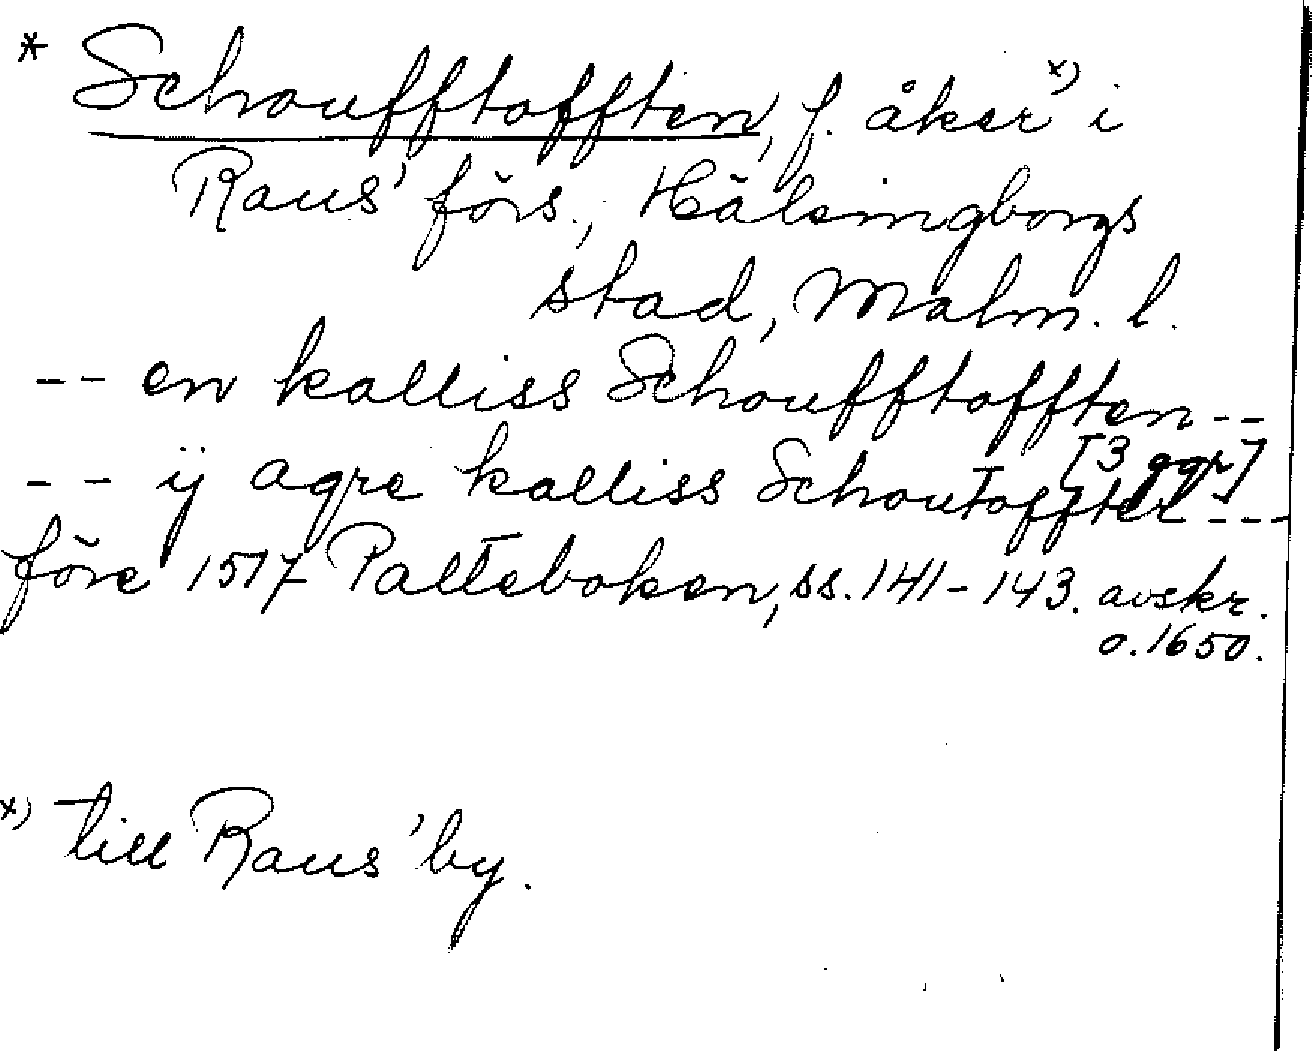 * Schoufftofften, f. åker x) i
Raus' förs., Hälsingborgs
stad, Malm. l.
-- en kalliss Schoufftofften --
[3 ggr]
-- ij agre kalliss Schoutoffter ---
före 1517 Palteboken, ss. 141-143. avskr.
o. 1650.
x) till Raus' by.